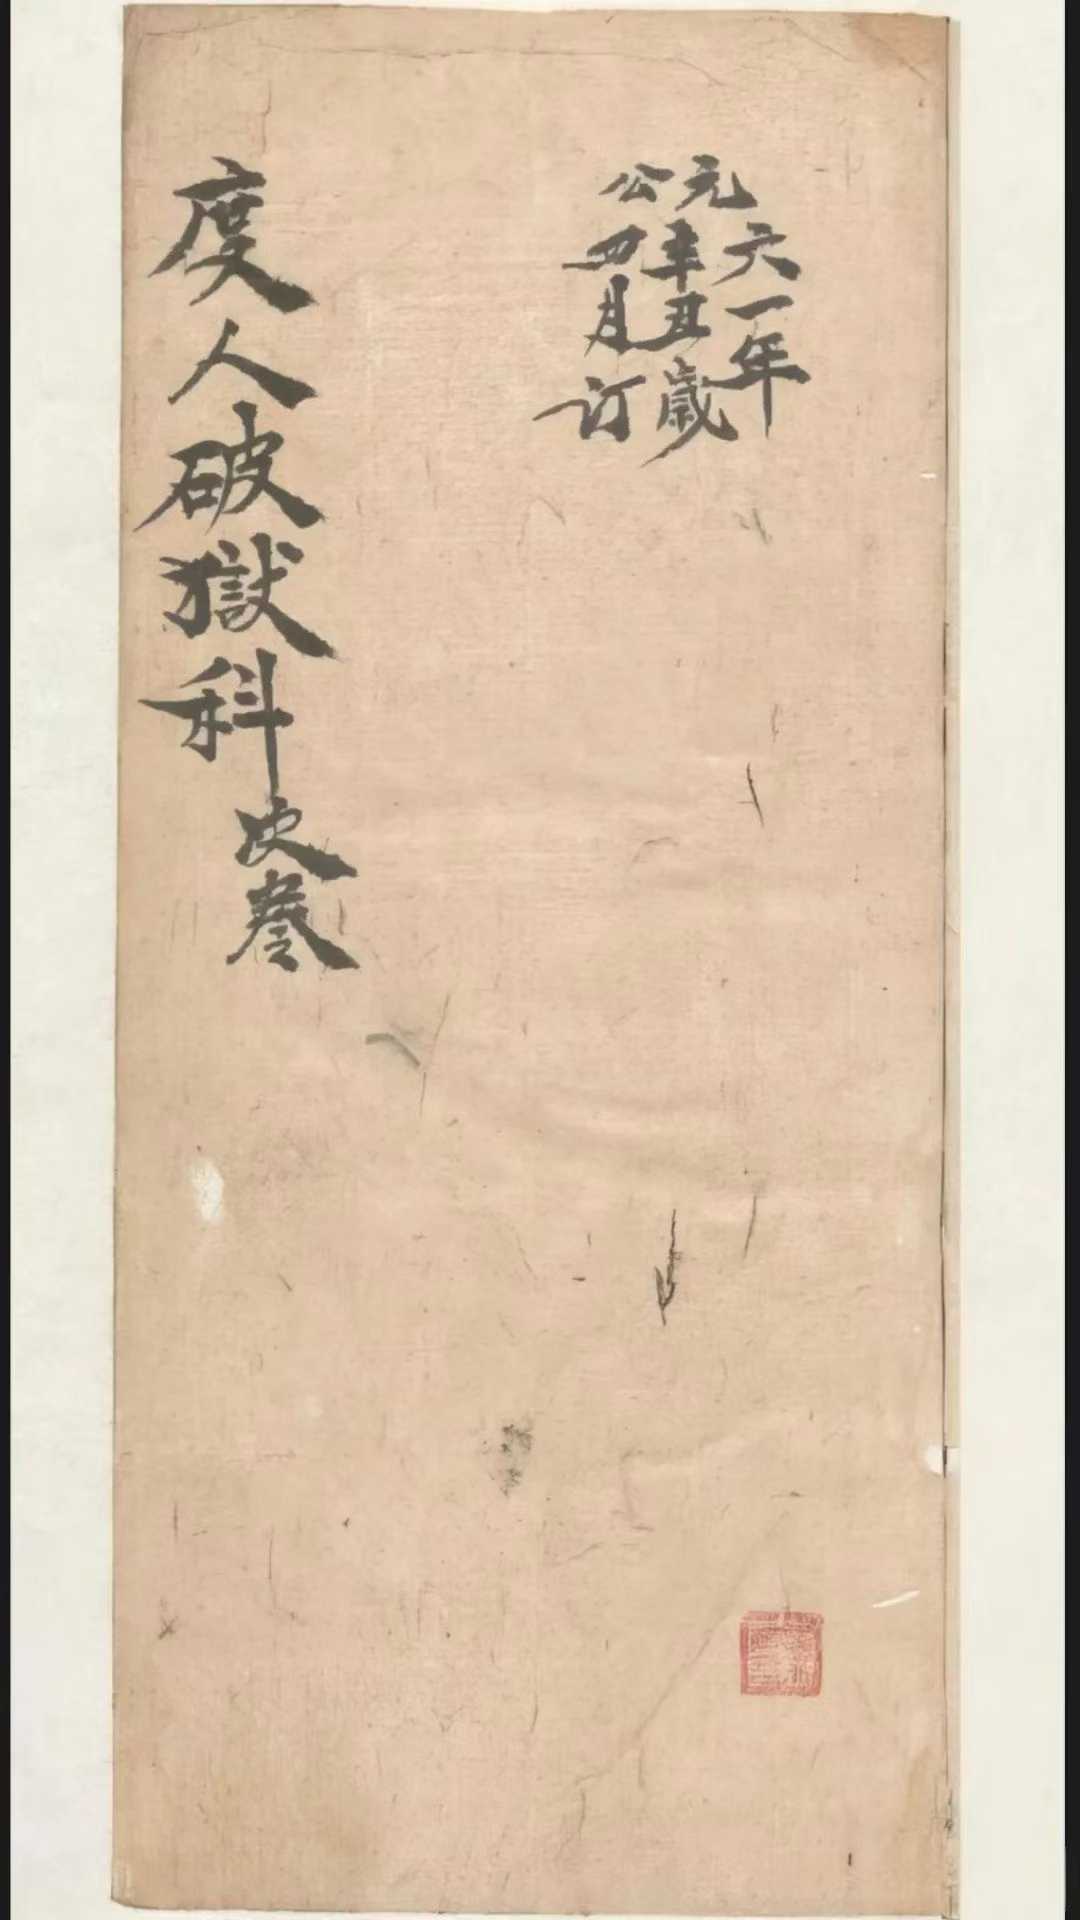 公元
六一年
辛丑歲
四月订
度人破獄科
次卷